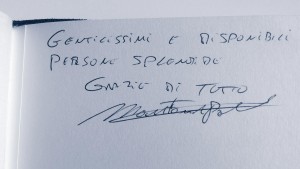 GENTILISSIMI E DISPONIBILI
PERSONE SPLENDIDE
GRAZIE DI TUTTO